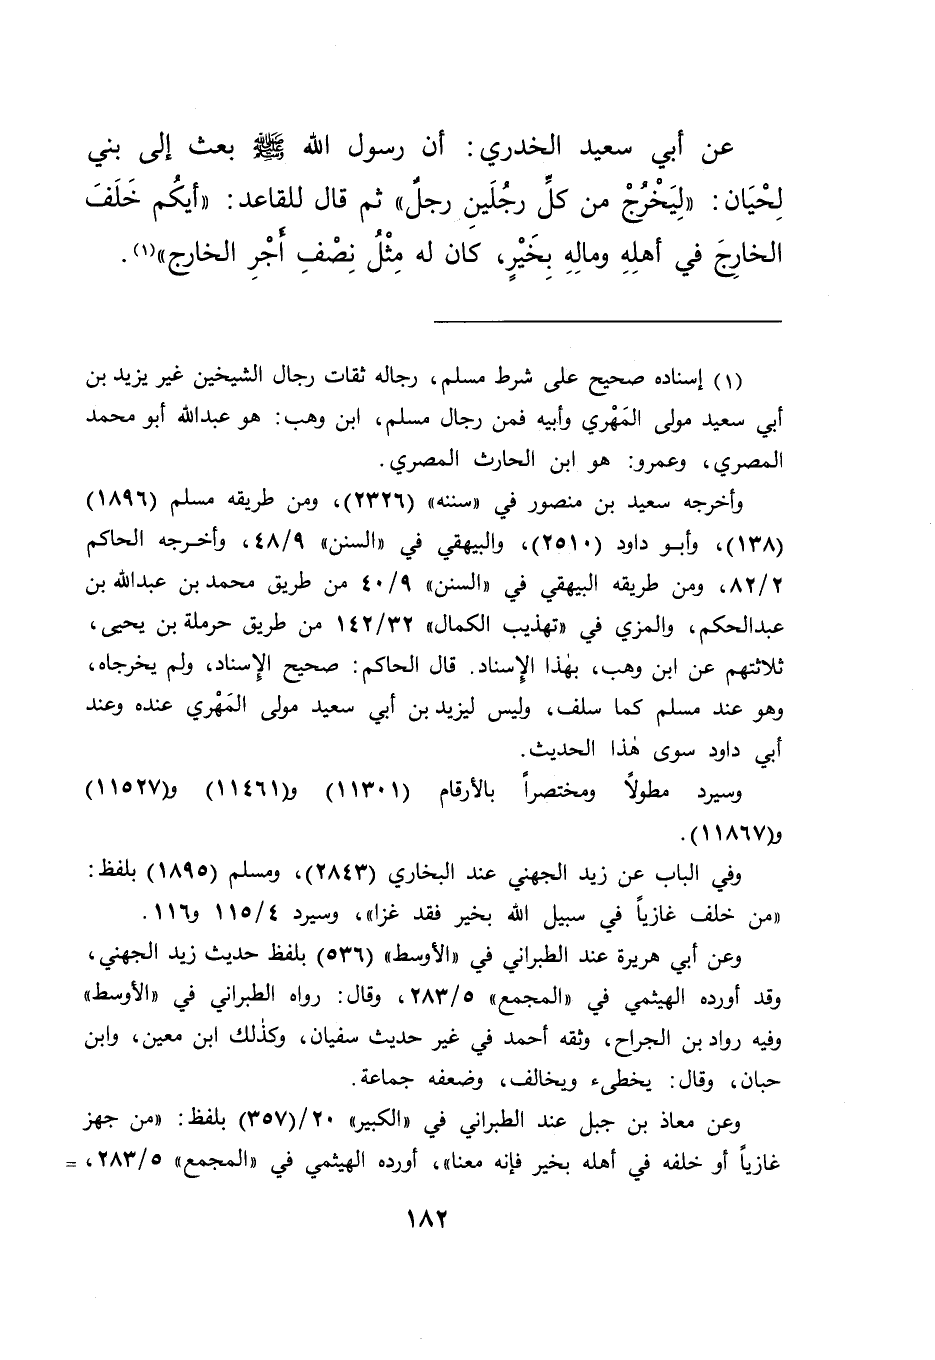 عن أبي سعيد الخدري: أن رسول الله ﷺ بعث إلى بني
لِحْيَان: «لِيَخْرُجْ من كلِّ رجُلَينِ رجلٌ» ثم قال للقاعد: «أيكُم خَلَفَ
الخارِجَ في أهلِهِ ومالِهِ بِخَيْرٍ، كان له مِثْلُ نِصْفِ أَجْرِ الخارج»(١).
(١) إسناده صحيح على شرط مسلم، رجاله ثقات رجال الشيخين غير يزيد بن
أبي سعيد مولى المَهْري وأبيه فمن رجال مسلم، ابن وهب: هو عبدالله أبو محمد
المصري، وعمرو: هو ابن الحارث المصري.
وأخرجه سعيد بن منصور في «سننه» (٢٣٢٦)، ومن طريقه مسلم (١٨٩٦)
(١٣٨)، وأبو داود (٢٥١٠)، والبيهقي في «السنن» ٤٨/٩، وأخرجه الحاكم
٨٢/٢، ومن طريقه البيهقي في «السنن» ٤٠/٩ من طريق محمد بن عبدالله بن
عبدالحكم، والمزي في «تهذيب الكمال» ١٤٢/٣٢ من طريق حرملة بن يحيى،
ثلاثتهم عن ابن وهب، بهٰذا الإسناد. قال الحاكم: صحيح الإسناد، ولم يخرجاه،
وهو عند مسلم كما سلف، وليس ليزيد بن أبي سعيد مولى المَهْري عنده وعند
أبي داود سوى هٰذا الحديث.
وسيرد مطولاً ومختصراً بالأرقام (١١٣٠١) و(١١٤٦١) و(١١٥٢٧)
و(١١٨٦٧).
وفي الباب عن زيد الجهني عند البخاري (٢٨٤٣)، ومسلم (١٨٩٥) بلفظ:
«من خلف غازياً في سبيل الله بخير فقد غزا»، وسيرد ١١٥/٤ و١١٦.
وعن أبي هريرة عند الطبراني في «الأوسط» (٥٣٦) بلفظ حديث زيد الجهني،
وقد أورده الهيثمي في «المجمع» ٢٨٣/٥، وقال: رواه الطبراني في «الأوسط»
وفيه رواد بن الجراح، وثقه أحمد في غير حديث سفيان، وكذٰلك ابن معين، وابن
حبان، وقال: يخطىء ويخالف، وضعفه جماعة.
وعن معاذ بن جبل عند الطبراني في «الكبير» ٢٠/(٣٥٧) بلفظ: «من جهز
غازياً أو خلفه في أهله بخير فإنه معنا»، أورده الهيثمي في «المجمع» ٢٨٣/٥، =
١٨٢